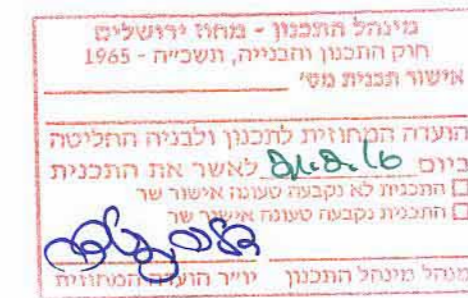 מינהל התכנון - מחוז ירושלים
חוק התכנון והבנייה, תשכ״ה - 1965
אישור תכנית מס׳
הועדה המחוזית לתכנון ולבניה החליטה
ביום לאשר את התכנית
☐ התכנית לא נקבעה טעונה אישור שר
☐ התכנית נקבעה טעונה אישור שר
מנהל מינהל התכנון יו״ר הועדה המחוזית